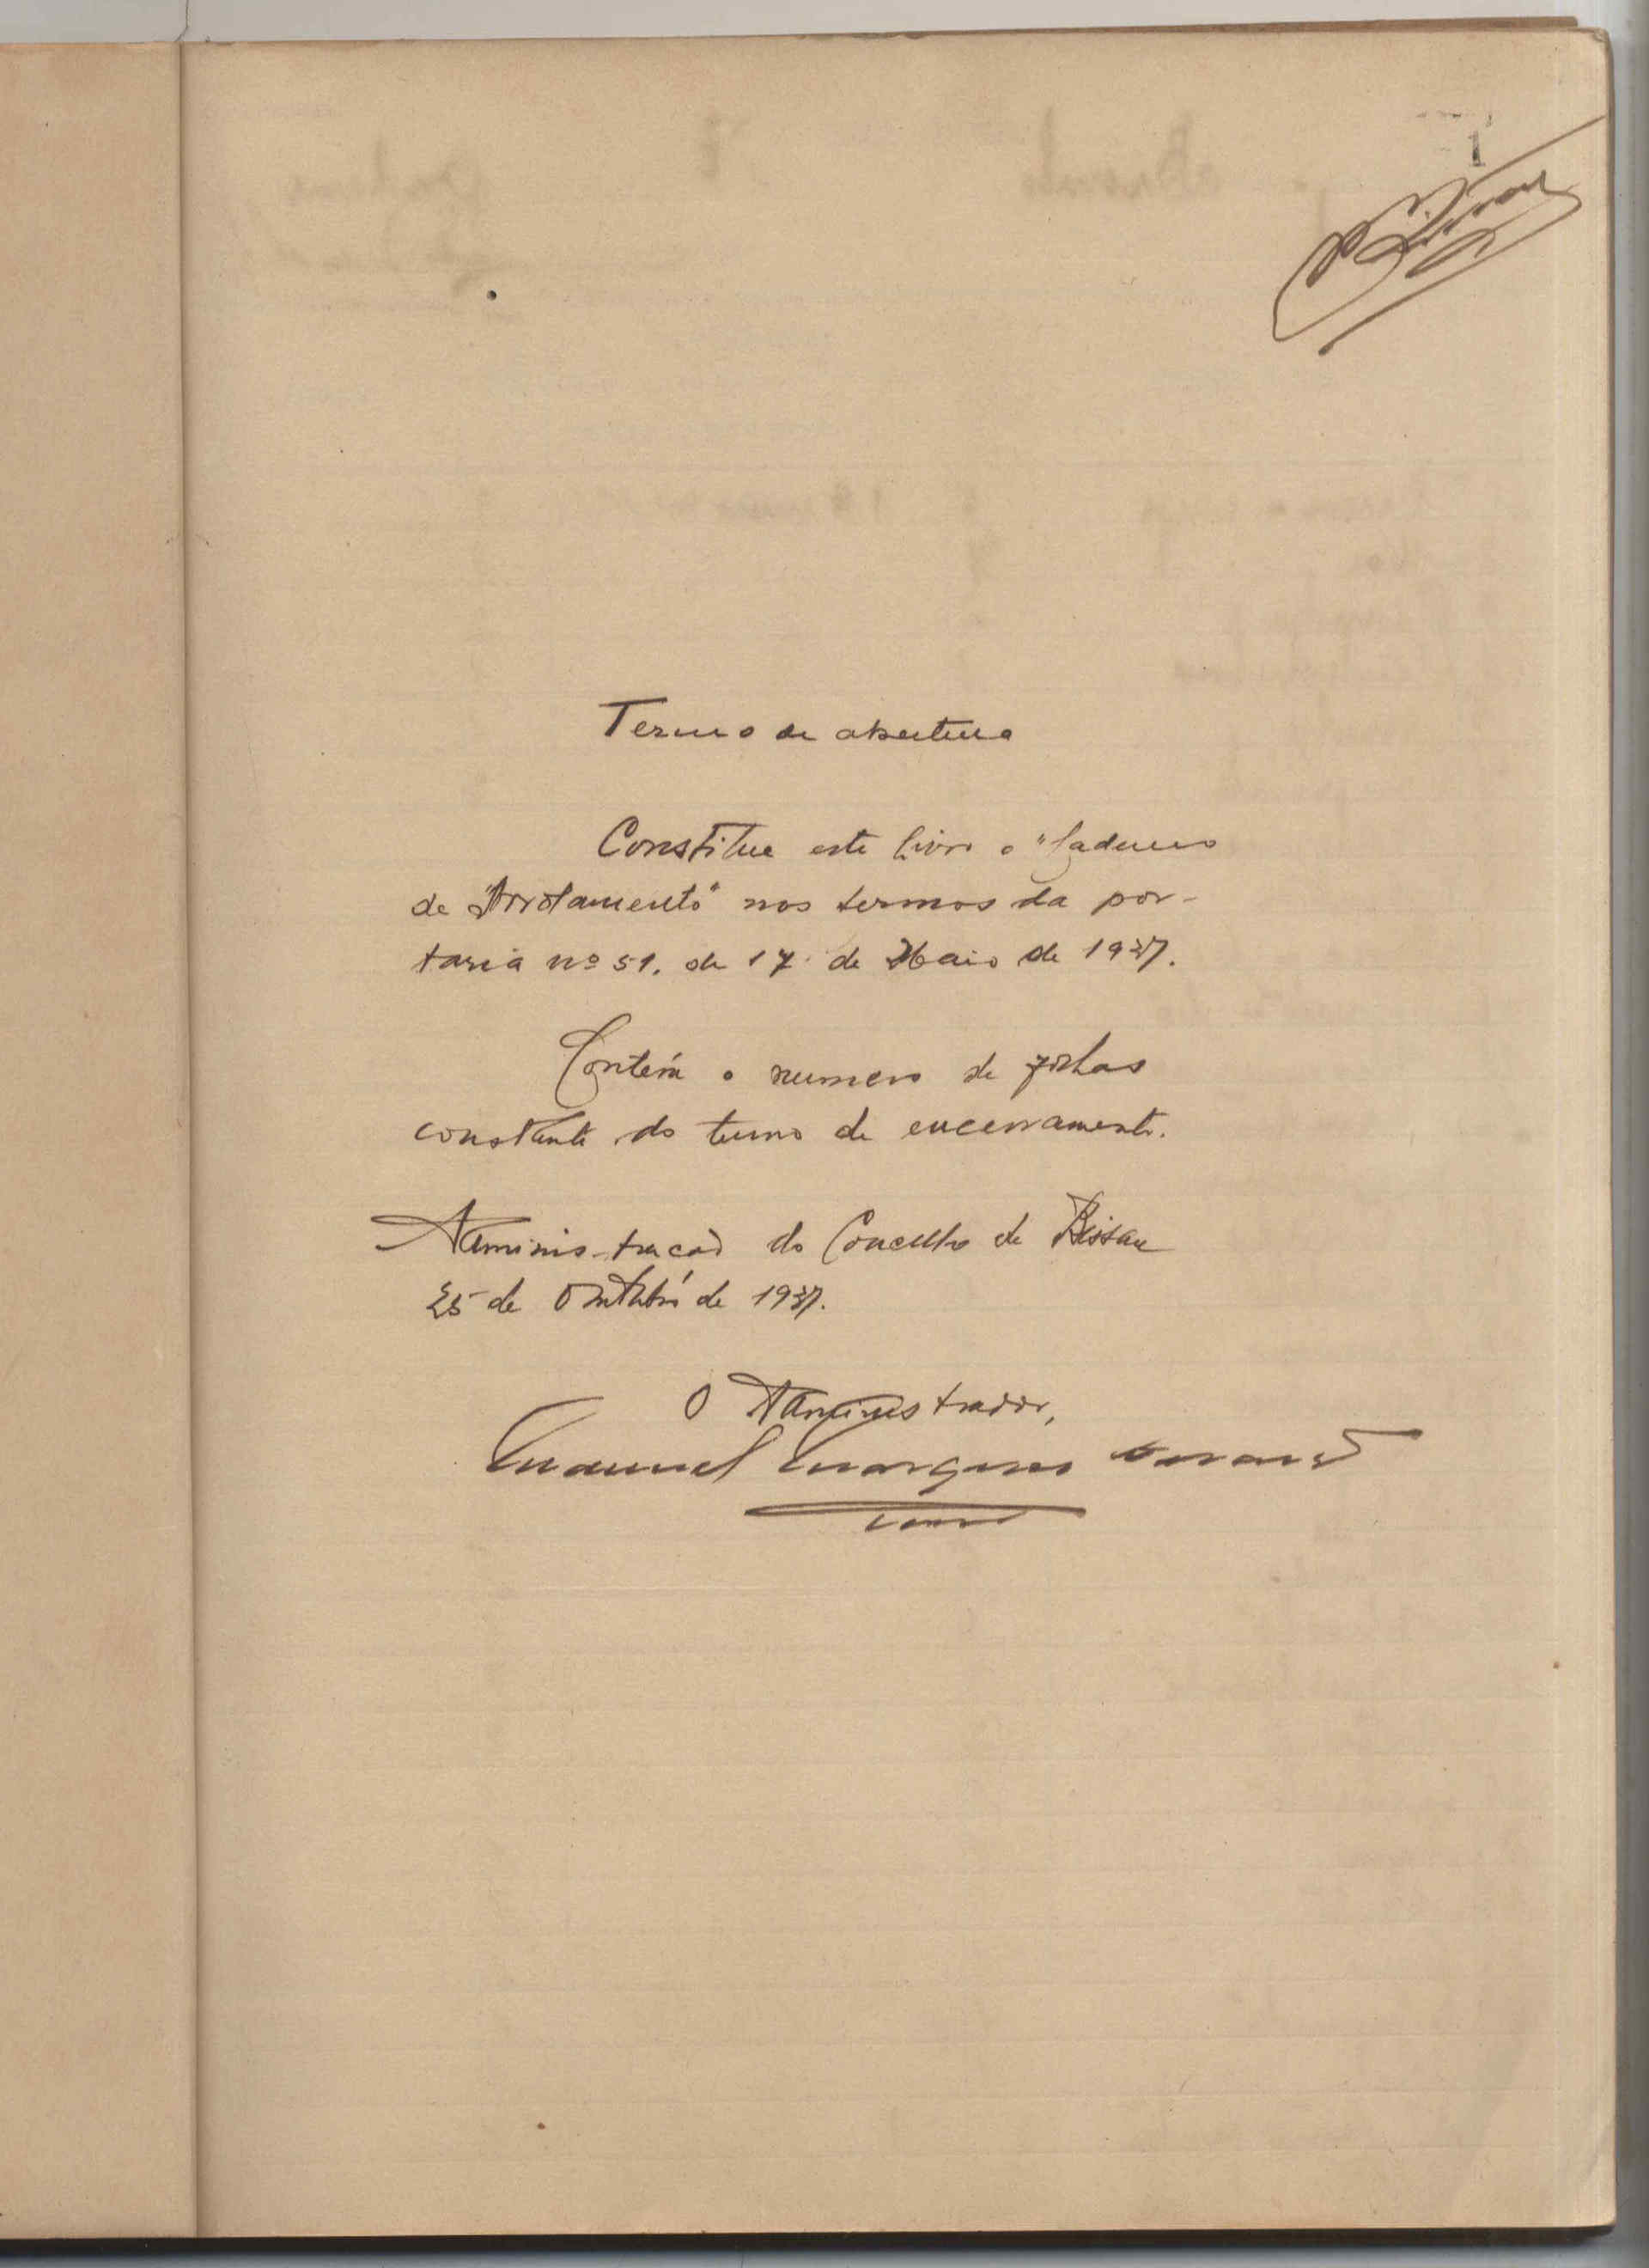 1
Termo de abertura
Constitue este livro o "Caderno
de Arrolamento" nos termos da por-
taria nº 51. de 17 de Maio de 1937.
Contém o numero de folhas
constante do termo de encerramento.
Administracaò do Concelho de Bissau
25 de Outubro de 1937.
O Administrador,
Manuel Marques